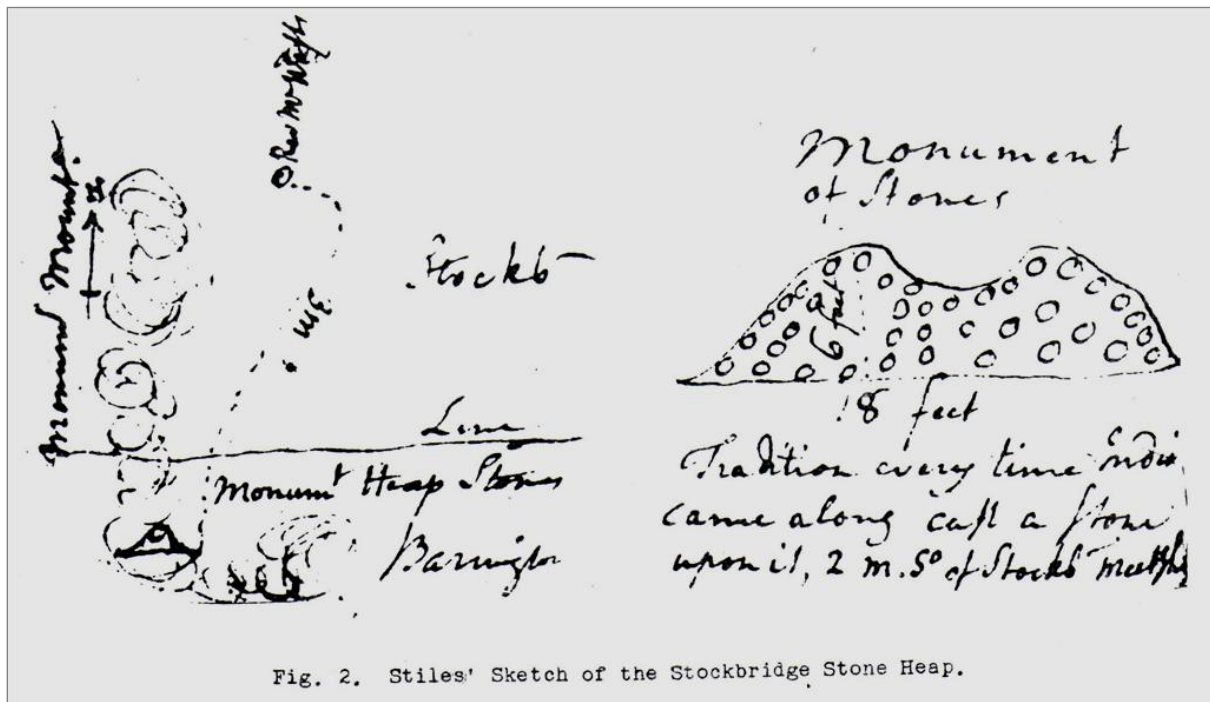 Monumt Mountn.
N.
Rev Mr West
Stockb
Line
Monumt Heap Stones
Barrington
Monument
of Stones
6 feet
18 feet
Tradition every time Indin
came along cast a stone
upon it, 2 m. So of Stockb Meetghs
Fig. 2. Stiles' Sketch of the Stockbridge Stone Heap.